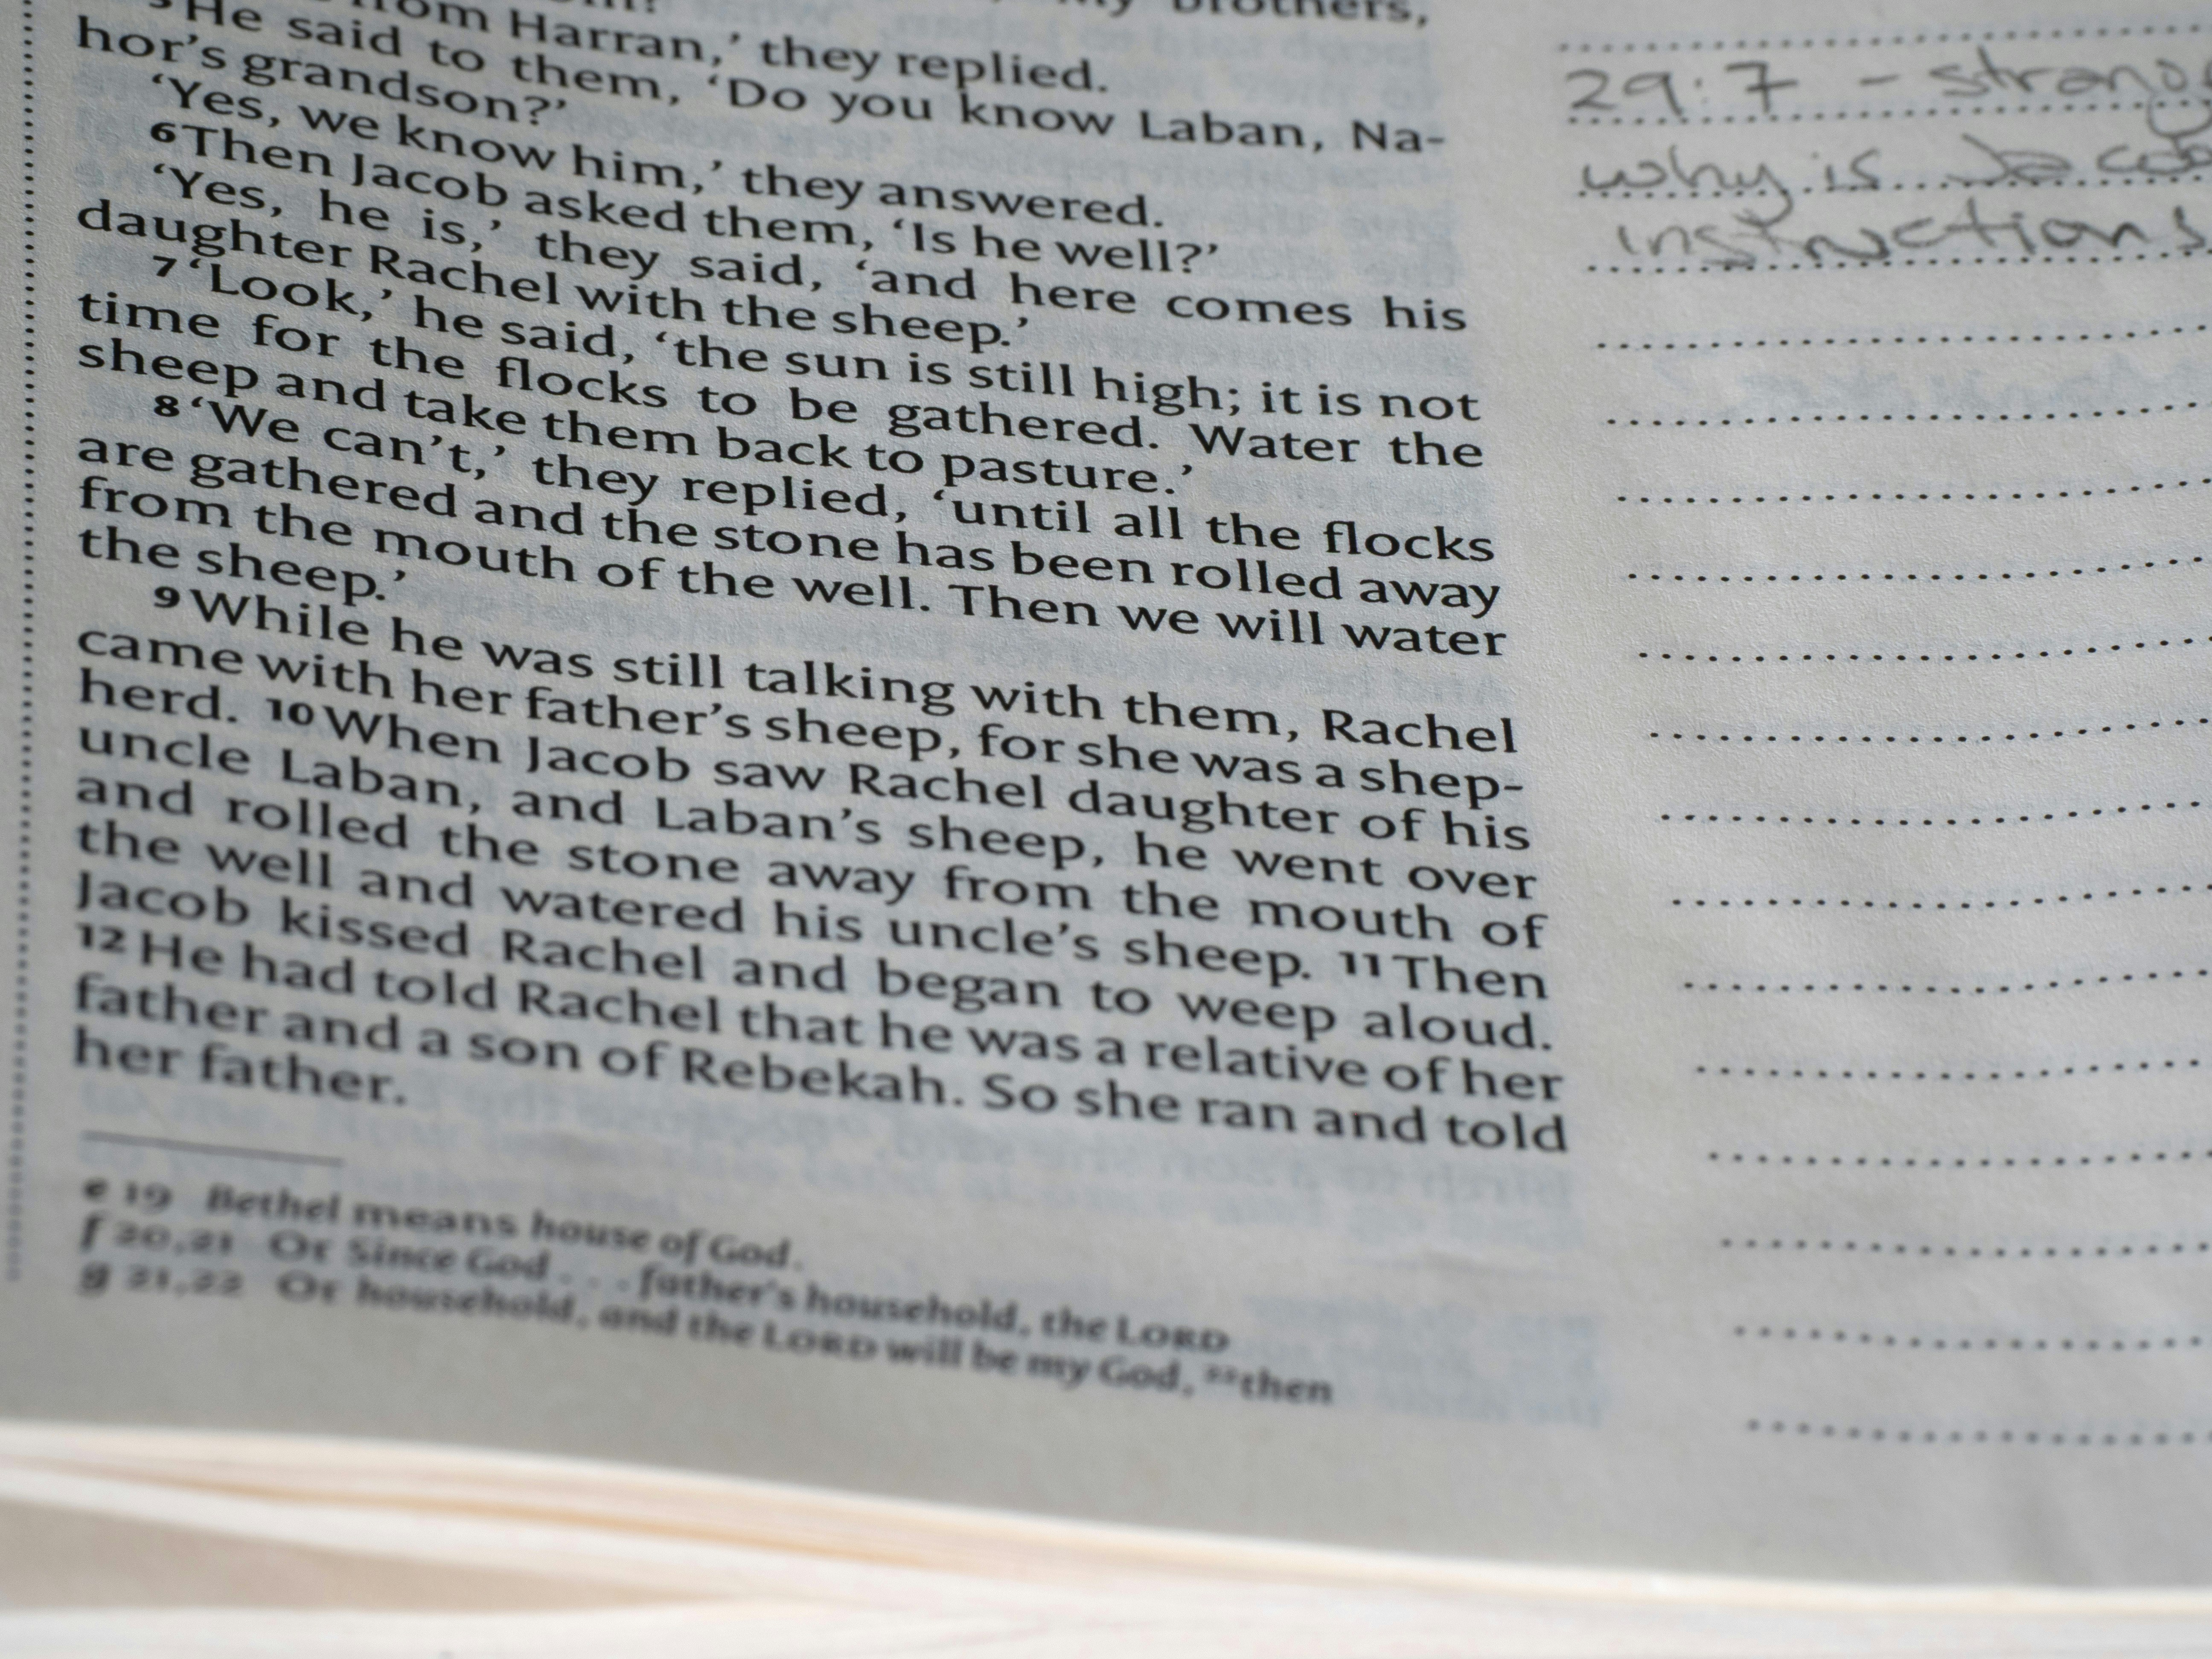 brothers,
from Harran,’ they replied.
5 He said to them, ‘Do you know Laban, Na-
hor’s grandson?’
‘Yes, we know him,’ they answered.
6 Then Jacob asked them, ‘Is he well?’
‘Yes, he is,’ they said, ‘and here comes his
daughter Rachel with the sheep.’
7 ‘Look,’ he said, ‘the sun is still high; it is not
time for the flocks to be gathered. Water the
sheep and take them back to pasture.’
8 ‘We can’t,’ they replied, ‘until all the flocks
are gathered and the stone has been rolled away
from the mouth of the well. Then we will water
the sheep.’
9 While he was still talking with them, Rachel
came with her father’s sheep, for she was a shep-
herd. 10 When Jacob saw Rachel daughter of his
uncle Laban, and Laban’s sheep, he went over
and rolled the stone away from the mouth of
the well and watered his uncle’s sheep. 11 Then
Jacob kissed Rachel and began to weep aloud.
12 He had told Rachel that he was a relative of her
father and a son of Rebekah. So she ran and told
her father.
e 19 Bethel means house of God.
f 20,21 Or Since God . . . father’s household, the LORD
g 21,22 Or household, and the LORD will be my God, 22 then
29:7 - strang
why is Jacob
instructions